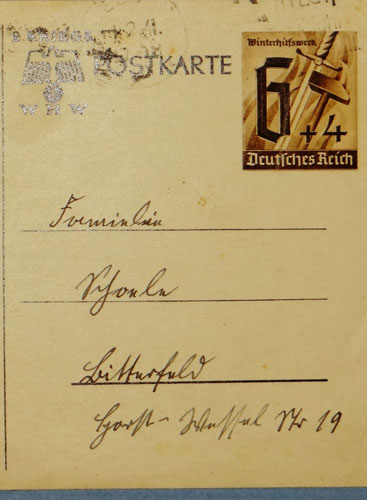 POSTKARTE
W H W
Winterhilfswerk
6+4
Deutsches Reich
Schoele
Bitterfeld
Horst-Wessel Str 19